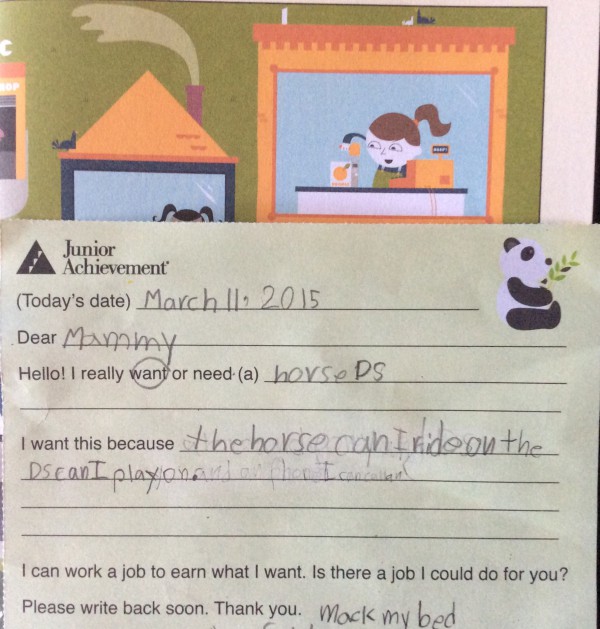 C
OP
Junior
Achievement
(Today's date) March 11, 2015
Dear Mammy
Hello! I really want or need (a) horse DS
I want this because the horse can I ride on the
DS can I play on and or Phone I can call on
I can work a job to earn what I want. Is there a job I could do for you?
Please write back soon. Thank you. Mack my bed